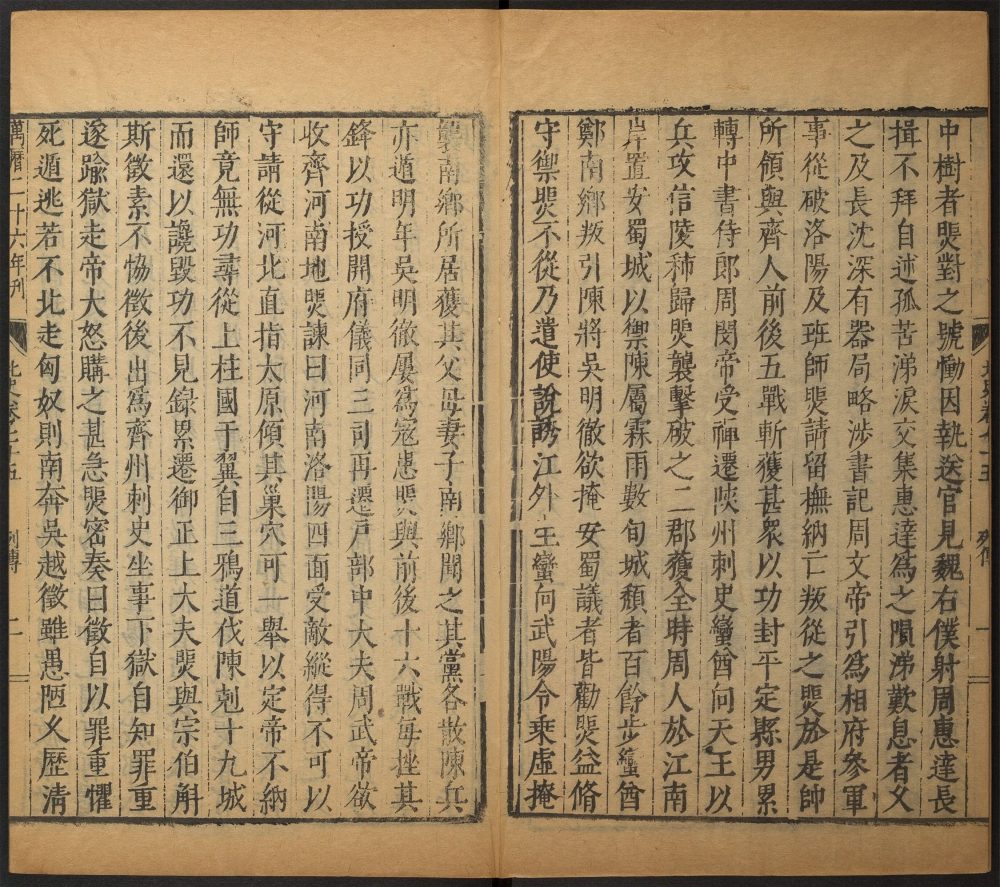 中樹者煚對之號慟因執送官見魏右僕射周惠達長
揖不拜自述孤苦涕淚交集惠達爲之隕涕歎息者久
之及長沈深有器局略涉書記周文帝引爲相府參軍
事從破洛陽及班師煚請留撫納亡叛從之煚於是帥
所領與齊人前後五戰斬獲甚衆以功封平定縣男累
轉中書侍郎周閔帝受禪遷陜州刺史蠻酋向天王以
兵攻信陵秭歸煚襲擊破之二郡獲全時周人於江南
岸置安蜀城以禦陳屬霖雨數旬城頽者百餘步蠻酋
鄭南鄉叛引陳將吳明徹欲掩安蜀議者皆勸煚益脩
守禦煚不從乃遣使說誘江外生蠻向武陽令乘虛掩
襲南鄉所居獲其父母妻子南鄉聞之其黨各散陳兵
亦遁明年吳明徹屢爲寇患煚與前後十六戰每挫其
鋒以功授開府儀同三司再遷戶部中大夫周武帝欲
收齊河南地煚諫曰河南洛陽四面受敵縱得不可以
守請從河北直指太原傾其巢穴可一舉以定帝不納
師竟無功尋從上柱國于翼自三鴉道伐陳剋十九城
而還以讒毀功不見録累遷御正上大夫煚與宗伯斛
斯徵素不恊徵後出爲齊州刺史坐事下獄自知罪重
遂踰獄走帝大怒購之甚急煚密奏曰徵自以罪重懼
死遁逃若不北走匈奴則南奔吳越徵雖愚陋久歷清
萬曆二十六年刊 北史卷七十五 列傳 二